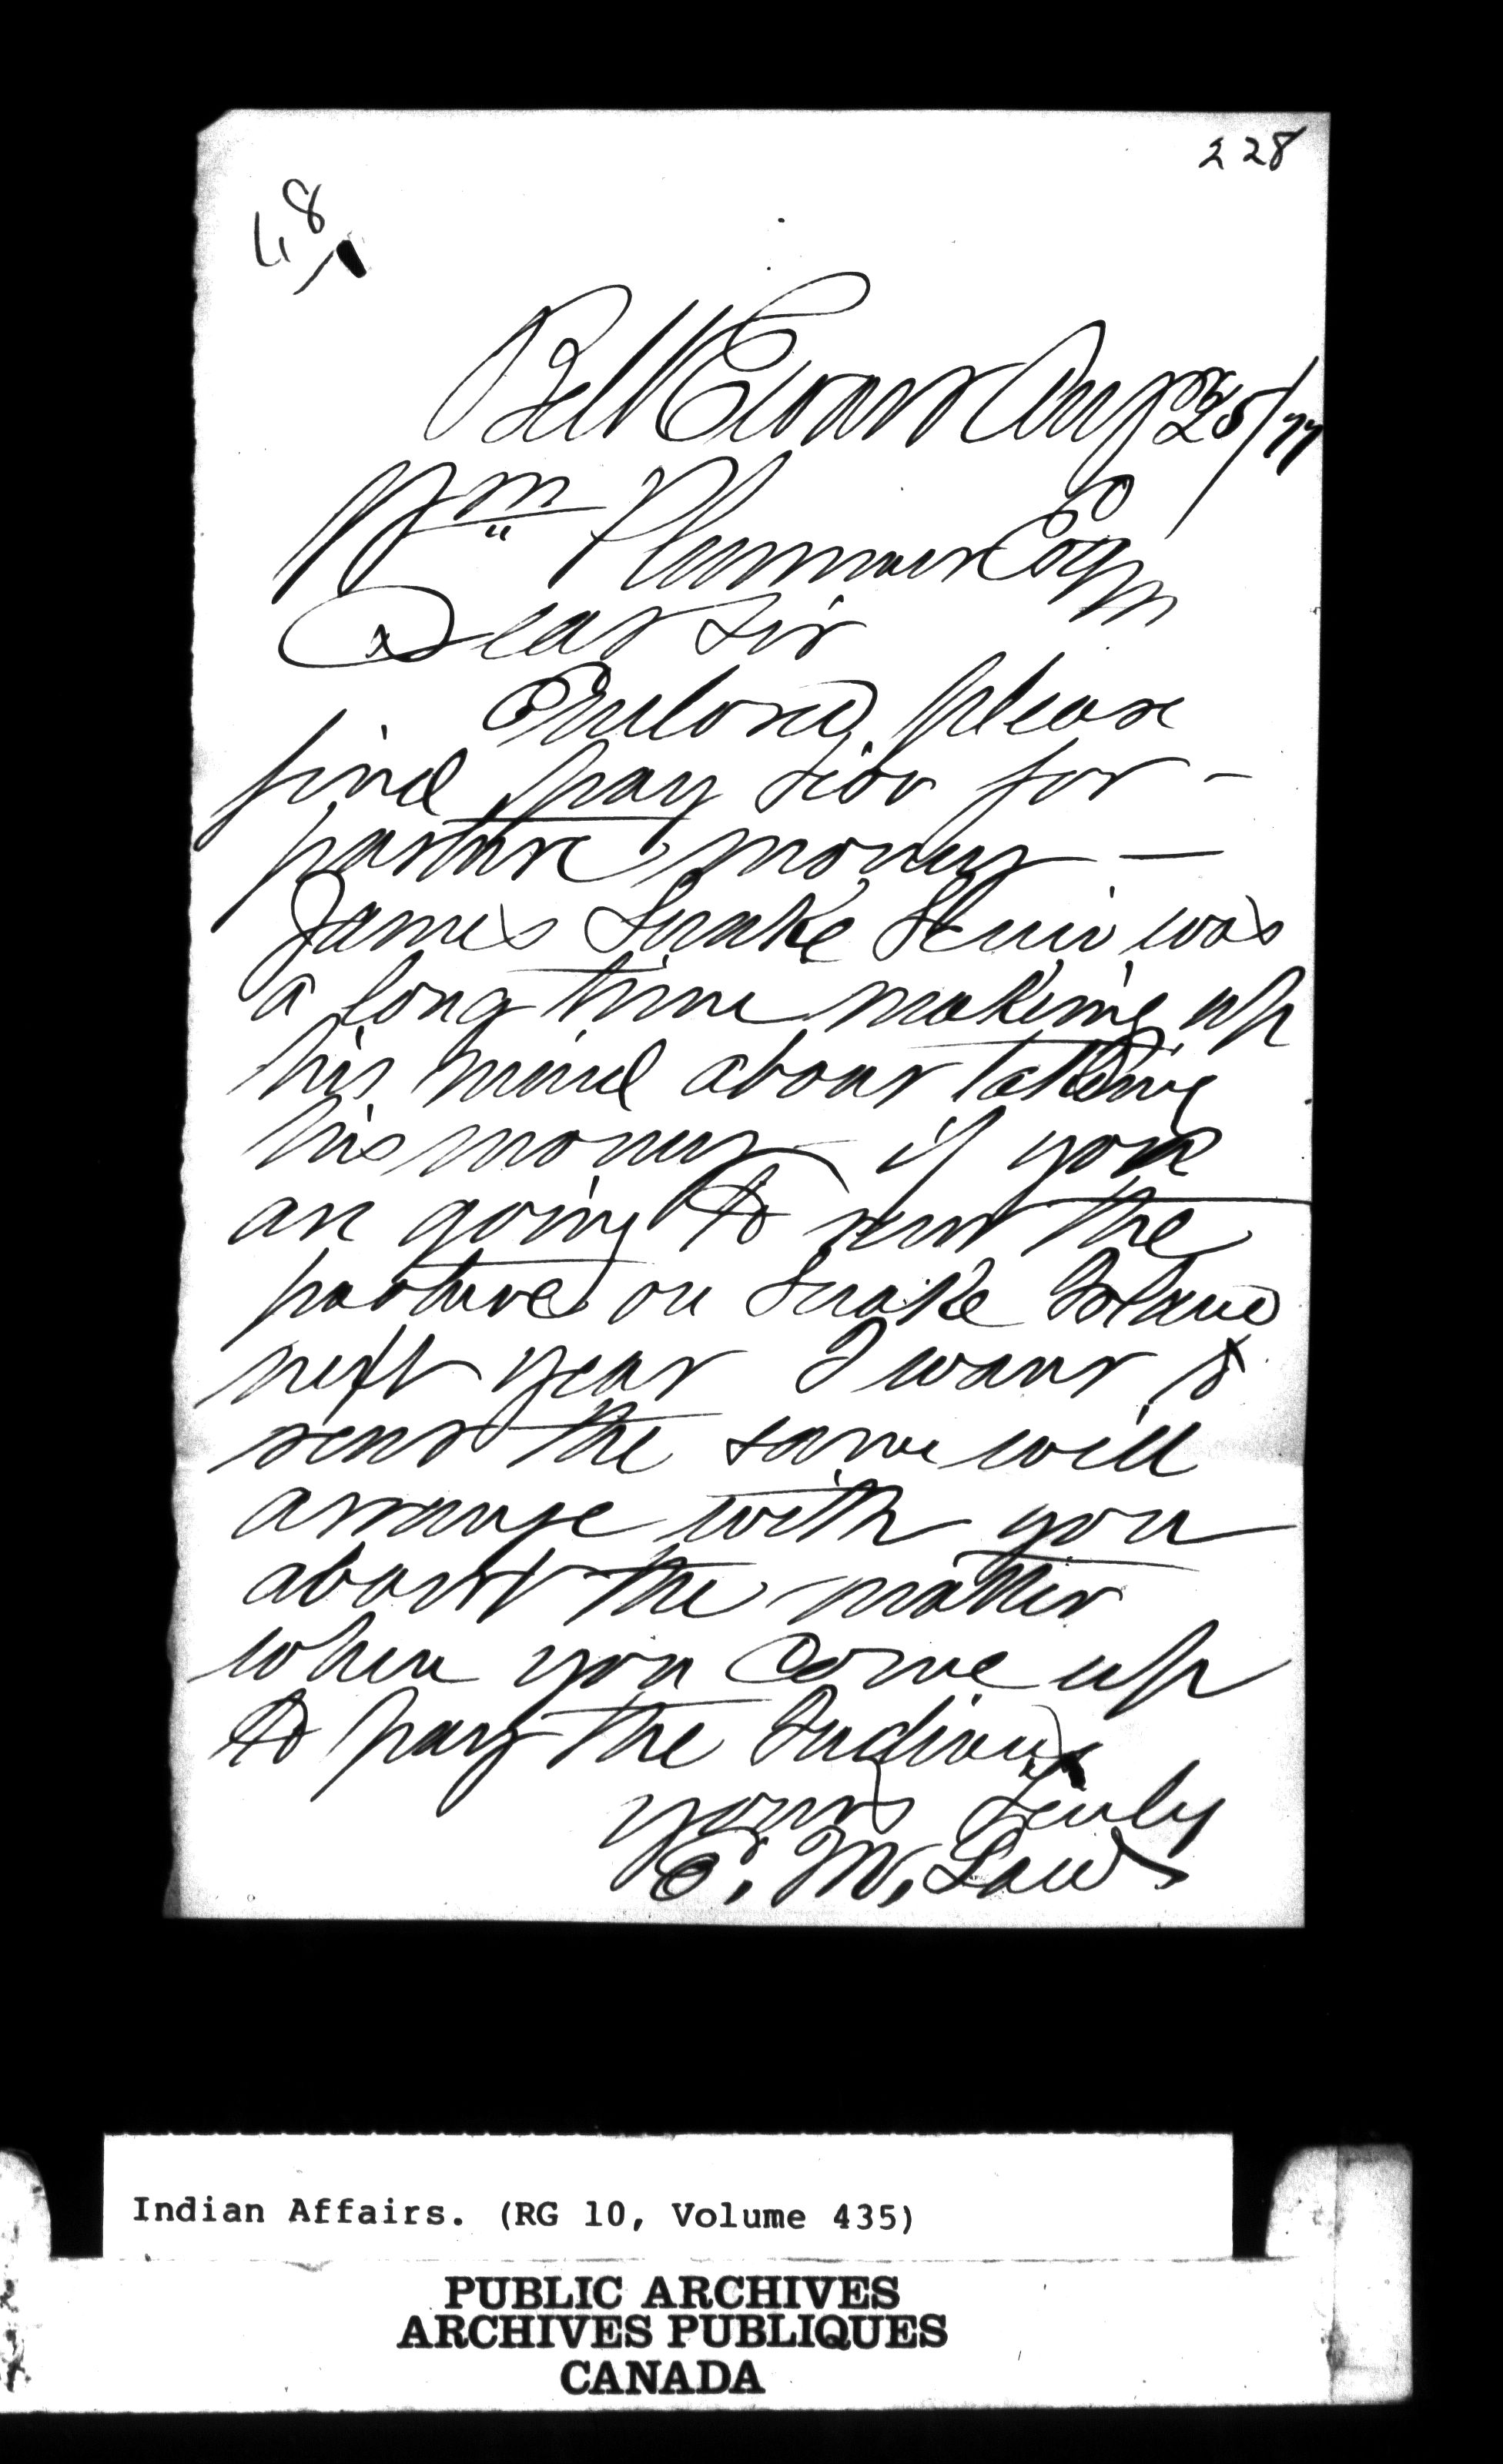 228
48
Bell Ewart Aug 25/77
Wm Plummer Esqr
Dear Sir
Enclosed please
find pay for -
pasture money —
James Snake was
a long time making up
his mind about taking
his money - if you
are going to rent the
pasture on Snake Island
next year I want to
rent the same will
arrange with you
about the matter
when you come up
to pay the Indians
yours truly
E. M. Laws
Indian Affairs. (RG 10, Volume 435)
PUBLIC ARCHIVES
ARCHIVES PUBLIQUES
CANADA